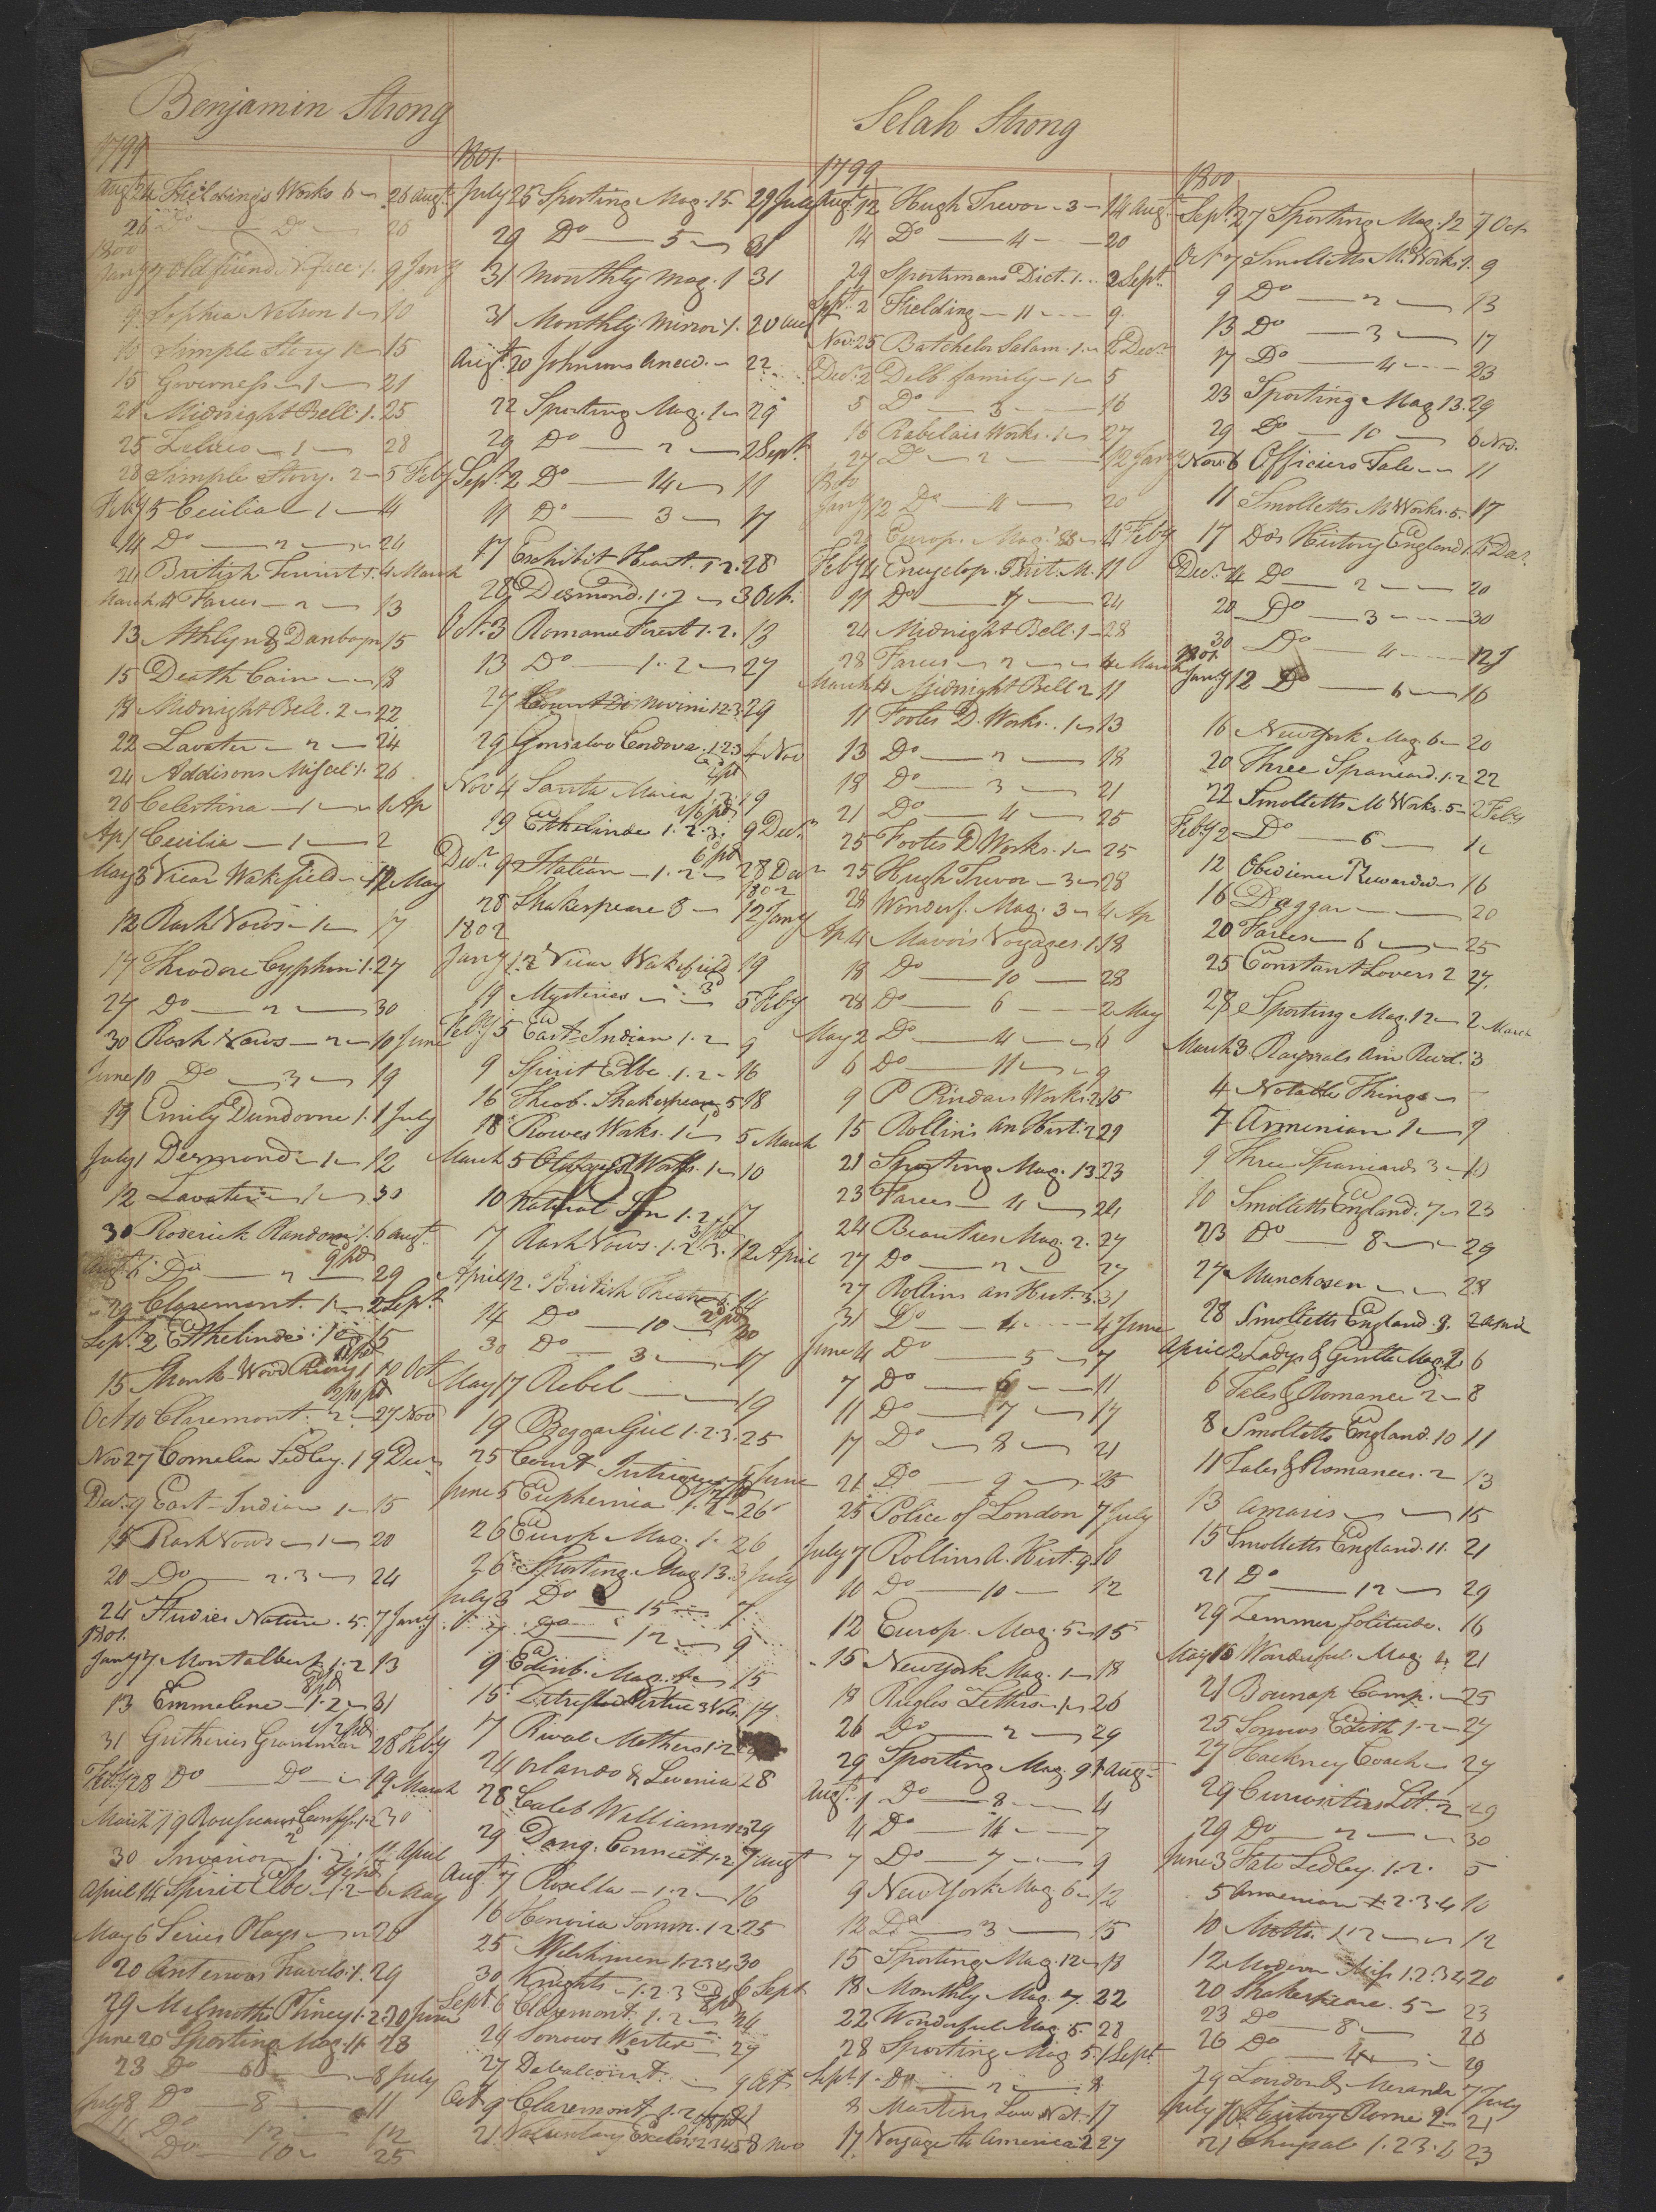 Benjamin Strong
1799
Augt 24 Fieldings Works 6 26 Augt
26 Do Do 28
1800
Jany 7 Old friend N. face 1. 9 Jany
9 Sophia Nelson 1 10
10 Simple Story 1 15
15 Governess 1 21
21 Midnight Bell. 1. 25
25 Zeluco 1 28
28 Simple Story. 2 5 Feby
Feby 5 Cecilia 1 14
14 Do 2 24
24 British 1. 4 March
March 4 Farces 2 13
13 Athlyn & Danbayn 15
15 Death Cain 18
18 Midnight Bell. 2 22
22 Lavater 2 24
24 Addisons Miscel. 1. 26
26 Celestina 1 1 Ap
Ap 1 Cecilia 1 2
May 3 Vicar Wakefield 12 May
12 Rash Vows 1 17
17 Theodore Cyphon 1. 27
27 Do 2 30
30 Rash Vows 2 10 June
June 10 Do 3 19
19 Emily Dundorne 1. 1 July
July 1 Desmond 1 12
12 Lavater 1 30
30 Roderick Random 1. 6 Augt
Augt 6 Do 2 29
29 Claremont. 1 2 Sept
Sept 2 Ethelinde 1 15
15 10 Oct
Oct 10 Claremont. 2 27 Nov
Nov 27 Cornelia Sedley. 1 9 Decr
Decr 9 East Indian 1 15
15 Rash Vows 1 20
20 Do 2.3 24
24 Studies Nature. 5. 7 Jany
1801.
Jany 7 Montalbert 1.2 13
13 Emmeline 1.2 31
31 Gutheries Grammar 28 Feby
Feby 28 Do Do 19 March
March 19 Rousseaus Confess. 1.2 30
30 Invasion 1.2. 14 April
April 14 Spirit Elbe 1.2 6 May
May 6 Series Plays 20
20 Antenors Travels. 1. 29
29 Melmoths Pliney 1.2. 20 June
June 20 Sporting Mag. 11 23
23 Do 8 July
July 8 Do 8 11
11 Do 12 12
Do 10 25
1801.
July 25 Sporting Mag. 15 29 July
29 Do 5 31
31 Monthly Mag. 1 31
31 Monthly Mirror 1. 20 Aug
Augt 20 Johnsons Anecd. 22
22 Sporting Mag. 1 29
29 Do 2 2 Sept
Sept 2 Do 14 11
11 Do 3 17
17 Exhibit Heart. 1.2. 28
28 Desmond. 1.2 3 Oct.
Oct. 3 Romance Forest 1.2. 13
13 Do 1.2 27
27 Count Di Novini 1.2.3. 29
29 Gonsalvo Cordova. 1.2.3 4 Nov
Nov 4 Santa Maria 1.2. 19
19 Ethelinde 1.2.3. 9 Decr
Decr 9 Italian 1.2 28 Decr
1802
28 Shakespeare 8 12 Jany
1802
Jany 12 Vicar Wakefield 19
19 Mysteries 3 5 Feby
Feby 5 East Indian 1.2 9
9 Spirit Elbe. 1.2 16
16 Theob. Shakespeare 5 18
18 Rowes Works. 1 5 March
March 5 Works. 1 10
10 Natural Son 1.2 17
17 Rash Vows. 1.2.3. 12 April
April 12. British Theatre 14
14 Do 10 30
30 Do 3 17
May 17 Rebel 19
19 Beggar Girl 1.2.3. 25
25 Court Intrigue 5 June
June 5 Euphemia 1.2 26
26 Europ. Mag. 1. 26
26 Sporting Mag 13. 3 July
July 3 Do 15 7
7 Do 12 9
9 Edinb. Mag. 15
15 17
17 Rival Mothers 1.2
24 Orlando & Levenia 28
28 Caleb Williams 29
29 Dang. Connect. 1.2 7 Augt
Aug. 7 Rosella 1.2 16
16 Honoria Somm. 1.2 25
25 Welshmen 1.2.3.4 30
30 Knights 1.2.3 6 Sept
Sept 6 Claremont. 1.2 24
24 Sorrows Werter 27
27 Devalcourt 9 Oct
Oct 9 Claremont 1.2 21
21 Voluntary Exile. 1.2.3.4.5 8 Nov
Selah Strong
1799
Augt 12 Hugh Trevor 3 14 Augt
14 Do 4 20
29 Sportsmans Dict. 1. 2 Sept
Sept. 2 Fielding 11 9
Nov. 25 Batchelor Salam. 1 2 Decr
Decr 2 Delb. family 1 5
5 Do 3 16
16 Rabelais Works. 1 27
27 Do 2 12 Jany
1800
Jany 12 Do 4 20
Europ. Mag. 4 Feby
Feby 4 Encyclop. Brit. M. 11
11 Do 7 24
24 Midnight Bell. 1 28
28 Farces 2 4 March
March 4 Midnight Bell 2 11
11 Footes D. Works. 1 13
13 Do 2 18
18 Do 3 21
21 Do 4 25
25 Footes D Works. 1 25
25 Hugh Trevor 3 28
28 Wonderf. Mag. 3 4 Ap
Ap 4 Mavois Voyages. 1. 18
18 Do 10 28
28 Do 6 2 May
May 2 Do 4 6
6 Do 11 9
9 P Pindars Works. 2 15
15 Rollins An Hist. 2 21
21 Sporting Mag. 13 23
23 Farces 4 24
24 Beauties Mag. 2. 27
27 Do 2 27
27 Rollins An Hist. 3. 31
31 Do 4 4 June
June 4 Do 5 7
7 Do 6 11
11 Do 7 17
17 Do 8 21
21 Do 9 25
25 Police of London 7 July
July 7 Rollins A. Hist. 9. 10
10 Do 10 12
12 Europ. Mag. 5 15
15 NewYork Mag. 1 18
18 Rugles Letters 1 26
26 Do 2 29
29 Sporting Mag. 9 1 Augt
Augt 1 Do 8 4
4 Do 14 7
7 Do 7 9
9 NewYork Mag. 6 12
12 Do 3 15
15 Sporting Mag. 12 18
18 Monthly Mag. 7. 22
22 Wonderful Mag. 5. 28
28 Sporting Mag 5. 1 Sept
Sept. 1 Do 2 8
8 Martins Law Nat. 17
17 Voyage to America 2 27
1800
Sept. 27 Sporting Mag. 12 7 Oct
Oct 7 Smolletts M. Works 1. 9
9 Do 2 13
13 Do 3 17
17 Do 4 23
23 Sporting Mag 13. 29
29 Do 10 6 Nov.
Nov. 6 Officiers Tale 11
11 Smolletts M Works. 5. 17
17 Dos History England 1. 4 Decr
Decr 4 Do 2 20
20 Do 3 30
30 Do 4 12 J
1801.
Jany 12 Do 6 16
16 NewYork Mag 6 20
20 Three Spaniard. 1.2 22
22 Smolletts M Works. 5 2 Feby
Feby 2 Do 6 12
12 Obedience Rewarded 16
16 Daggar 20
20 Farces 6 25
25 Constant Lovers 2 27.
28 Sporting Mag. 12 2 March
March 3 Raynals Am Revd. 3
4 Notable Things
7 Armenian 1 9
9 Three Spaniards 3 10
10 Smolletts England. 7 23
23 Do 8 29
27 Munchosen 28
28 Smolletts England. 9. 2 April
April 2 Ladys & Gentle Mag. 2 6
6 Tales & Romance 2 8
8 Smolletts England. 10 11
11 Tales & Romances. 2 13
13 Amaris 15
15 Smolletts England. 11. 21
21 Do 12 29
29 Zemmer Solitude. 16
May 16 Wonderful Mag. 4 21
21 Bounap Camp. 25
25 Sorrows Edith 1.2 27
27 Hackney Coach 27
29 Curiosities Lit. 2 29
29 Do 2 30
June 3 Fate Sedley. 1.2. 5
5 Armenian 1.2.3.4 10
10 Motto. 1.2 12
12 Modern Miss 1.2.3.4 20
20 Shakespeare. 5 23
23 Do 8 26
26 Do 4 29
29 London & Meranda 7 July
July 7 History Rome 2 21
21 Chrysal 1.2.3.4 23